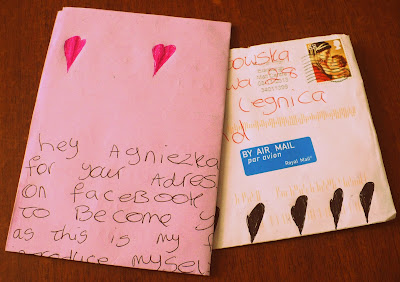 hey Agniezka
for your Adres
on faceBook
to Become y
as this is my
troduce myself
owska
wa 28
Legnica
nd
BY AIR MAIL
par avion
Royal Mail